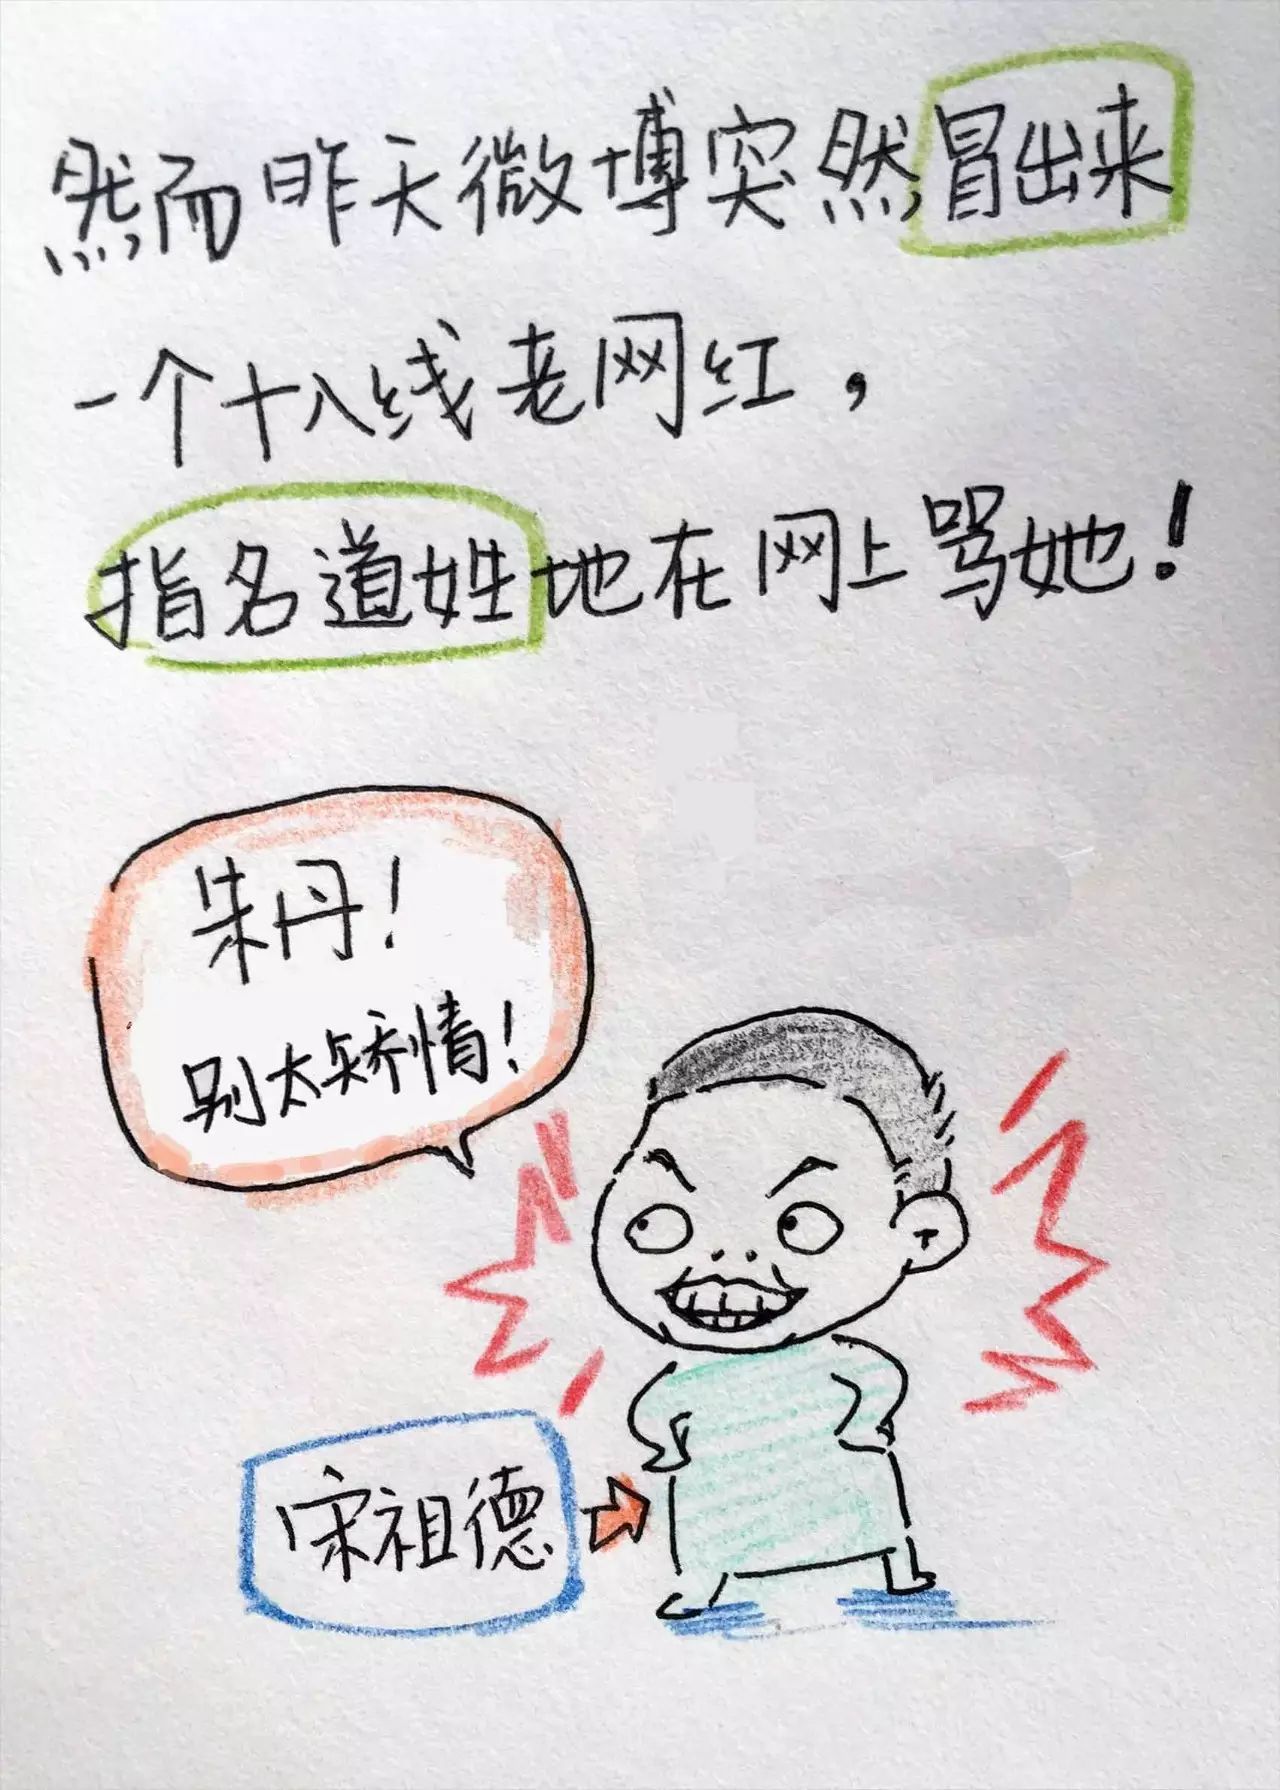 然而昨天微博突然冒出来
一个十八线老网红，
指名道姓地在网上骂她！
朱丹！
别太矫情！
宋祖德